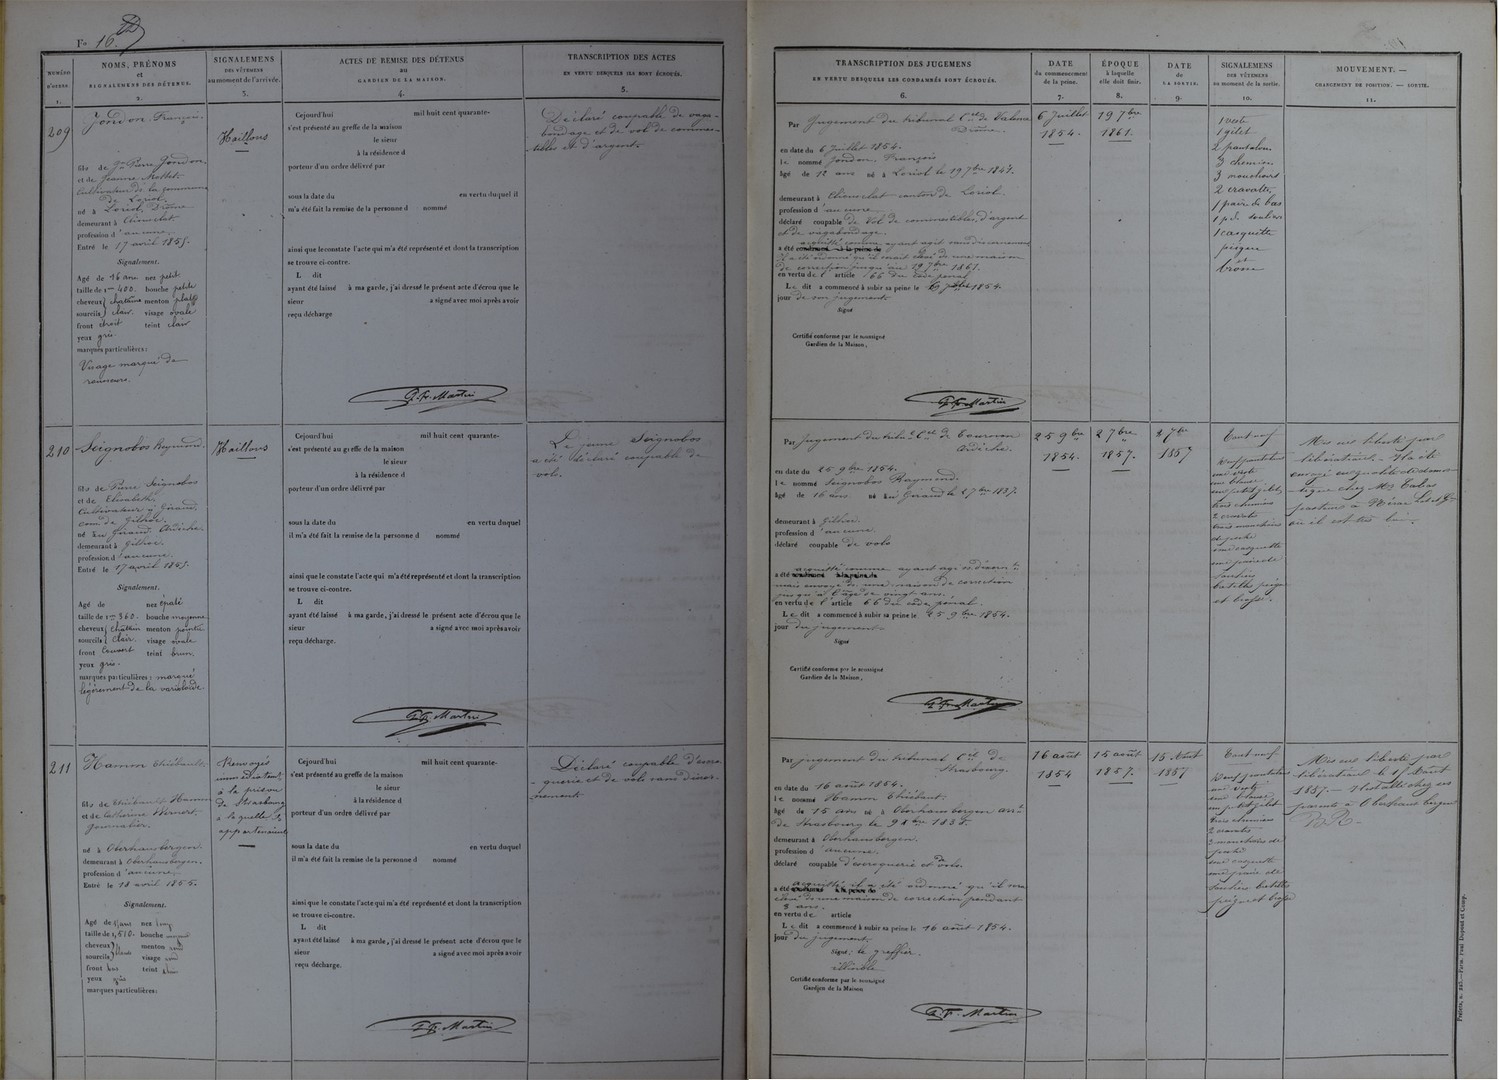 Fo 16
NUMÉRO D'ORDRE. 1.
NOMS, PRÉNOMS
et
SIGNALEMENS DES DÉTENUS.
2.
SIGNALEMENS
DES VÊTEMENS
au moment de l'arrivée.
3.
ACTES DE REMISE DES DÉTENUS
au
GARDIEN DE LA MAISON.
4.
TRANSCRIPTION DES ACTES
EN VERTU DESQUELS ILS SONT ÉCROUÉS.
5.
TRANSCRIPTION DES JUGEMENS
EN VERTU DESQUELS LES CONDAMNÉS SONT ÉCROUÉS.
6.
DATE
du commencement
de la peine.
7.
ÉPOQUE
à laquelle
elle doit finir.
8.
DATE
de
LA SORTIE.
9.
SIGNALEMENS
DES VÊTEMENS
au moment de la sortie.
10.
MOUVEMENT. —
CHANGEMENT DE POSITION. — SORTIE.
11.
209
Jondon François.
fils de Jn Pierre Jondon
et de Jeanne Mottet
Cultivateur de la commune
de Loriol,
né à Loriol, Drôme
demeurant à Cliousclat
profession d'aucune.
Entré le 17 avril 1855.
Signalement.
Agé de 16 ans nez petit
taille de 1m 400. bouche petite
cheveux châtains menton plat
sourcils clair. visage ovale
front étroit teint clair
yeux gris.
marques particulières:
Visage marqué de
rousseurs.
Haillons
Cejourd'hui mil huit cent quarante-
s'est présenté au greffe de la maison
le sieur
à la résidence d
porteur d'un ordre délivré par
sous la date du en vertu duquel il
m'a été fait la remise de la personne d nommé
ainsi que le constate l'acte qui m'a été représenté et dont la transcription
se trouve ci-contre.
L dit
ayant été laissé à ma garde, j'ai dressé le présent acte d'écrou que le
sieur a signé avec moi après avoir
reçu décharge
G. Fr. Martin
Déclaré coupable de vaga-
bondage et de vol de comes-
tibles et d'argent.
Par Jugement du tribunal Cel de Valence
Drôme.
en date du 6 juillet 1854.
le nommé Jondon, François
âgé de 12 ans né à Loriol le 19 7bre 1841.
demeurant à Cliousclat canton de Loriol.
profession d'aucune
déclaré coupable de vol de commestibles, d'argent
et de vagabondage.
a été acquitté comme ayant agit sans discernement
il a été ordonné qu'il serait élevé dans une maison
de correction jusqu'au 19 7bre 1861.
en vertu de l' article 66 du code pénal
Le dit a commencé à subir sa peine le 6 1854
jour de son jugement
Signé
Certifié conforme par le soussigné
Gardien de la Maison,
G. Fr. Martin
6 Juillet
1854.
19 7bre
1861.
1 veste
1 gilet
2 pantalons
3 chemises
3 mouchoirs
2 cravattes
1 paire de bas
1 p. de souliers
1 casquette
peigne
et
brosse
210
Seignobos Raymond.
fils de Pierre Seignobos
et de Elisabeth
Cultivateur à Girond,
com. de Gilhoc.
né au Girond, Ardèche
demeurant à Gilhoc.
profession d'aucune.
Entré le 17 avril 1855.
Signalement.
Agé de nez épaté
taille de 1m 360. bouche moyenne
cheveux châtain menton pointu
sourcils clair. visage ovale
front couvert teint brun.
yeux gris.
marques particulières: marqué
légèrement de la varioloïde
Haillons
Cejourd'hui mil huit cent quarante-
s'est présenté au greffe de la maison
le sieur
à la résidence d
porteur d'un ordre délivré par
sous la date du en vertu duquel
il m'a été fait la remise de la personne d nommé
ainsi que le constate l'acte qui m'a été représenté et dont la transcription
se trouve ci-contre.
L dit
ayant été laissé à ma garde, j'ai dressé le présent acte d'écrou que le
sieur a signé avec moi après avoir
reçu décharge.
G. Fr. Martin
Le jeune Seignobos
a été déclaré coupable de
vols.
Par Jugement du tribu. Cel de Tournon
Ardèche.
en date du 25 9bre 1854.
le nommé Seignobos Raymond.
âgé de 16 ans né au Girond le 2 7bre 1837.
demeurant à Gilhoc.
profession d'aucune.
déclaré coupable de vols
a été acquitté comme ayant agi s. discernt
mais envoyé ds une maison de correction
jusqu'à l'âge de vingt ans.
en vertu de l' article 66 du code pénal.
Le dit a commencé à subir sa peine le 25 9bre 1854.
jour du jugement.
Signé
Certifié conforme par le soussigné
Gardien de la Maison,
G. Fr. Martin
25 9bre
1854.
2 7bre
1857.
2 7bre
1857
Tout neuf
Deux pantalons
une veste
une blouse
un petit gilet
trois chemises
2 cravates
trois mouchoirs
de poche
une casquette
une paire de
souliers
bretelles peigne
et brosse.
Mis en liberté par
libération. Il a été
envoyé en qualité de domes-
-tique chez Mr
pasteur à Nérac Lot et Gne
où il est très bien.
211
Hamon Thiébault.
fils de Thiébault Hamon
et de Catherine Wernert.
journalier.
né à Oberhausbergen.
demeurant à Oberhausbergen.
profession d'aucune.
Entré le 18 avril 1855.
Signalement.
Agé de 15 ans nez long
taille de 1,510. bouche moyenne
cheveux blond menton rond
sourcils visage rond
front bas teint clair
yeux gris
marques particulières:
Renvoyés
immédiatement
à la prison
de Strasbourg
à laquelle ils
appartenaient
Cejourd'hui mil huit cent quarante-
s'est présenté au greffe de la maison
le sieur
à la résidence d
porteur d'un ordre délivré par
sous la date du en vertu duquel
il m'a été fait la remise de la personne d nommé
ainsi que le constate l'acte qui m'a été représenté et dont la transcription
se trouve ci-contre.
L dit
ayant été laissé à ma garde, j'ai dressé le présent acte d'écrou que le
sieur a signé avec moi après avoir
reçu décharge.
G. Fr. Martin
Déclaré coupable d'escro-
-querie et de vols sans discer-
nement.
Par jugement du tribunal Cel de
Strasbourg.
en date du 16 août 1854.
le nommé Hamon Thiébaut.
âgé de 15 ans né à Oberhausbergen arrt
de Strasbourg le 9 8bre 1838.
demeurant à Oberhausbergen.
profession d'aucune.
déclaré coupable d'escroquerie et de vols.
a été acquitté, il a été ordonné qu'il sera
élevé ds une maison de correction pendant
3 ans.
en vertu de article
Le dit a commencé à subir sa peine le 16 août 1854.
jour du jugement.
Signé: le greffier.
illisible
Certifié conforme par le soussigné
Gardien de la Maison
G. F. Martin
16 août
1854
15 août
1857.
15 Août
1857
Tout neuf
Deux pantalons
une veste
une blouse
un petit gilet
trois chemises
2 cravates
3 mouchoirs de
poche
une casquette
une paire de
souliers bretelles
peigne et brosse
Mis en liberté par
libération le 15 août
1857. — Il est allé chez ses
parents à Oberhausbergen
B. R.